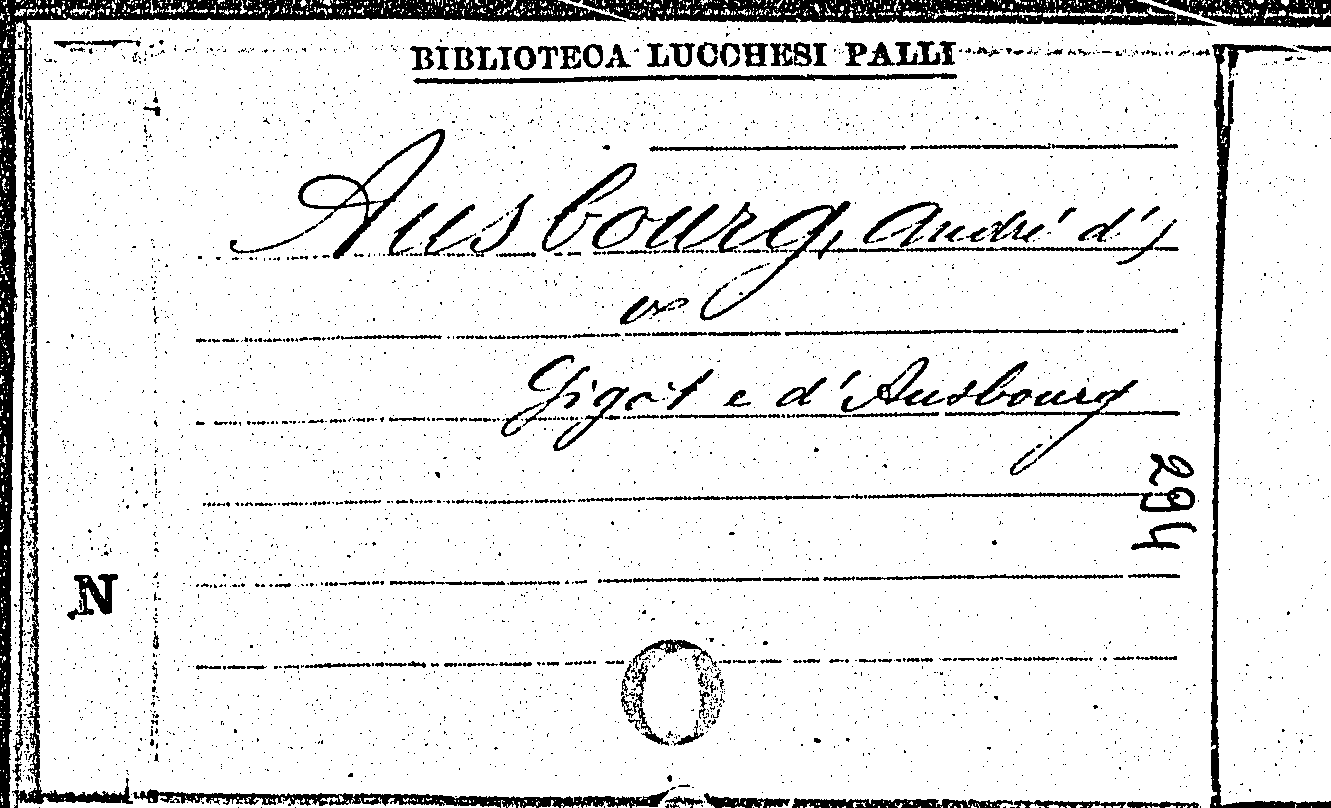 BIBLIOTECA LUCCHESI PALLI
Ausbourg, André d',
Gigot e d'Ausbourg
294
N